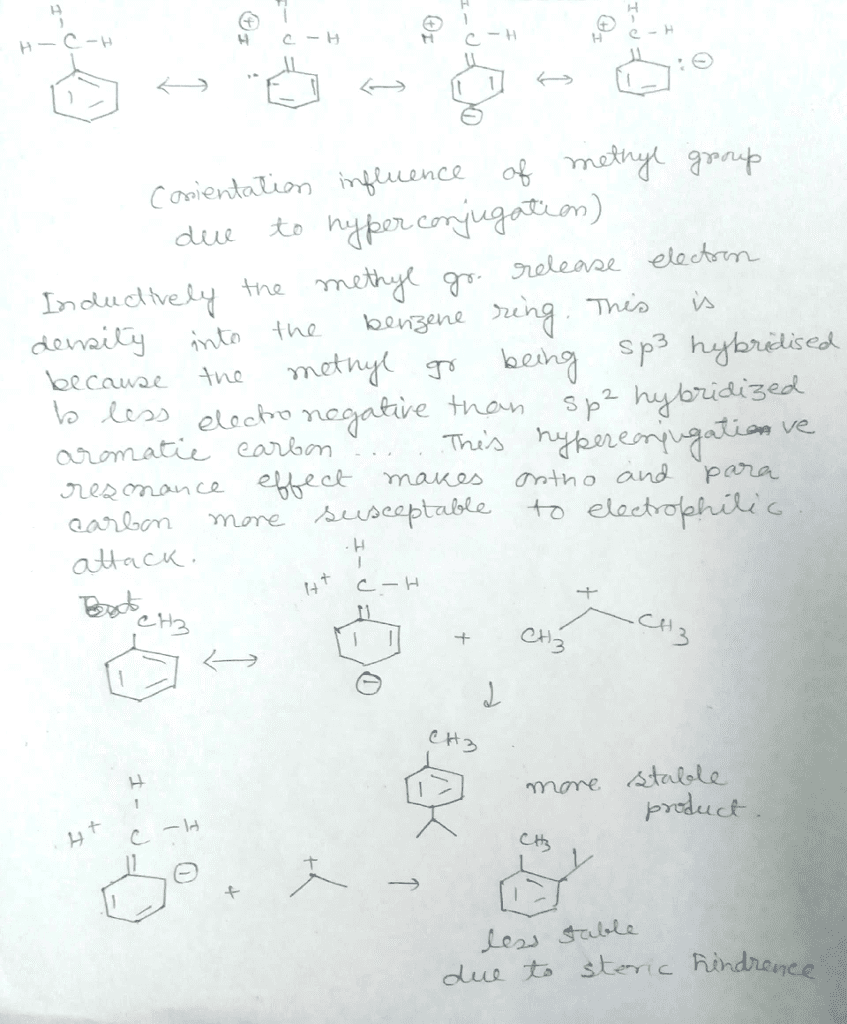 H H H H
H – C – H ⊕ H C – H ⊕ H C – H ⊕ H C – H
↔ ·· ↔ ⊖ ↔ : ⊖
(orientation influence of methyl group
due to hyperconjugation)
Inductively the methyl gr. release electron
density into the benzene ring. This is
because the methyl gr being sp3 hybridised
is less electronegative than sp2 hybridized
aromatic carbon .... This hyperconjugative
resonance effect makes ortho and para
carbon more susceptable to electrophilic
attack.
H
H+ C – H
CH3 ↔ ⊖ + CH3 + CH3
↓
CH3
more stable
product.
H
H+ C – H
⊖ + + → CH3
less stable
due to steric hindrence